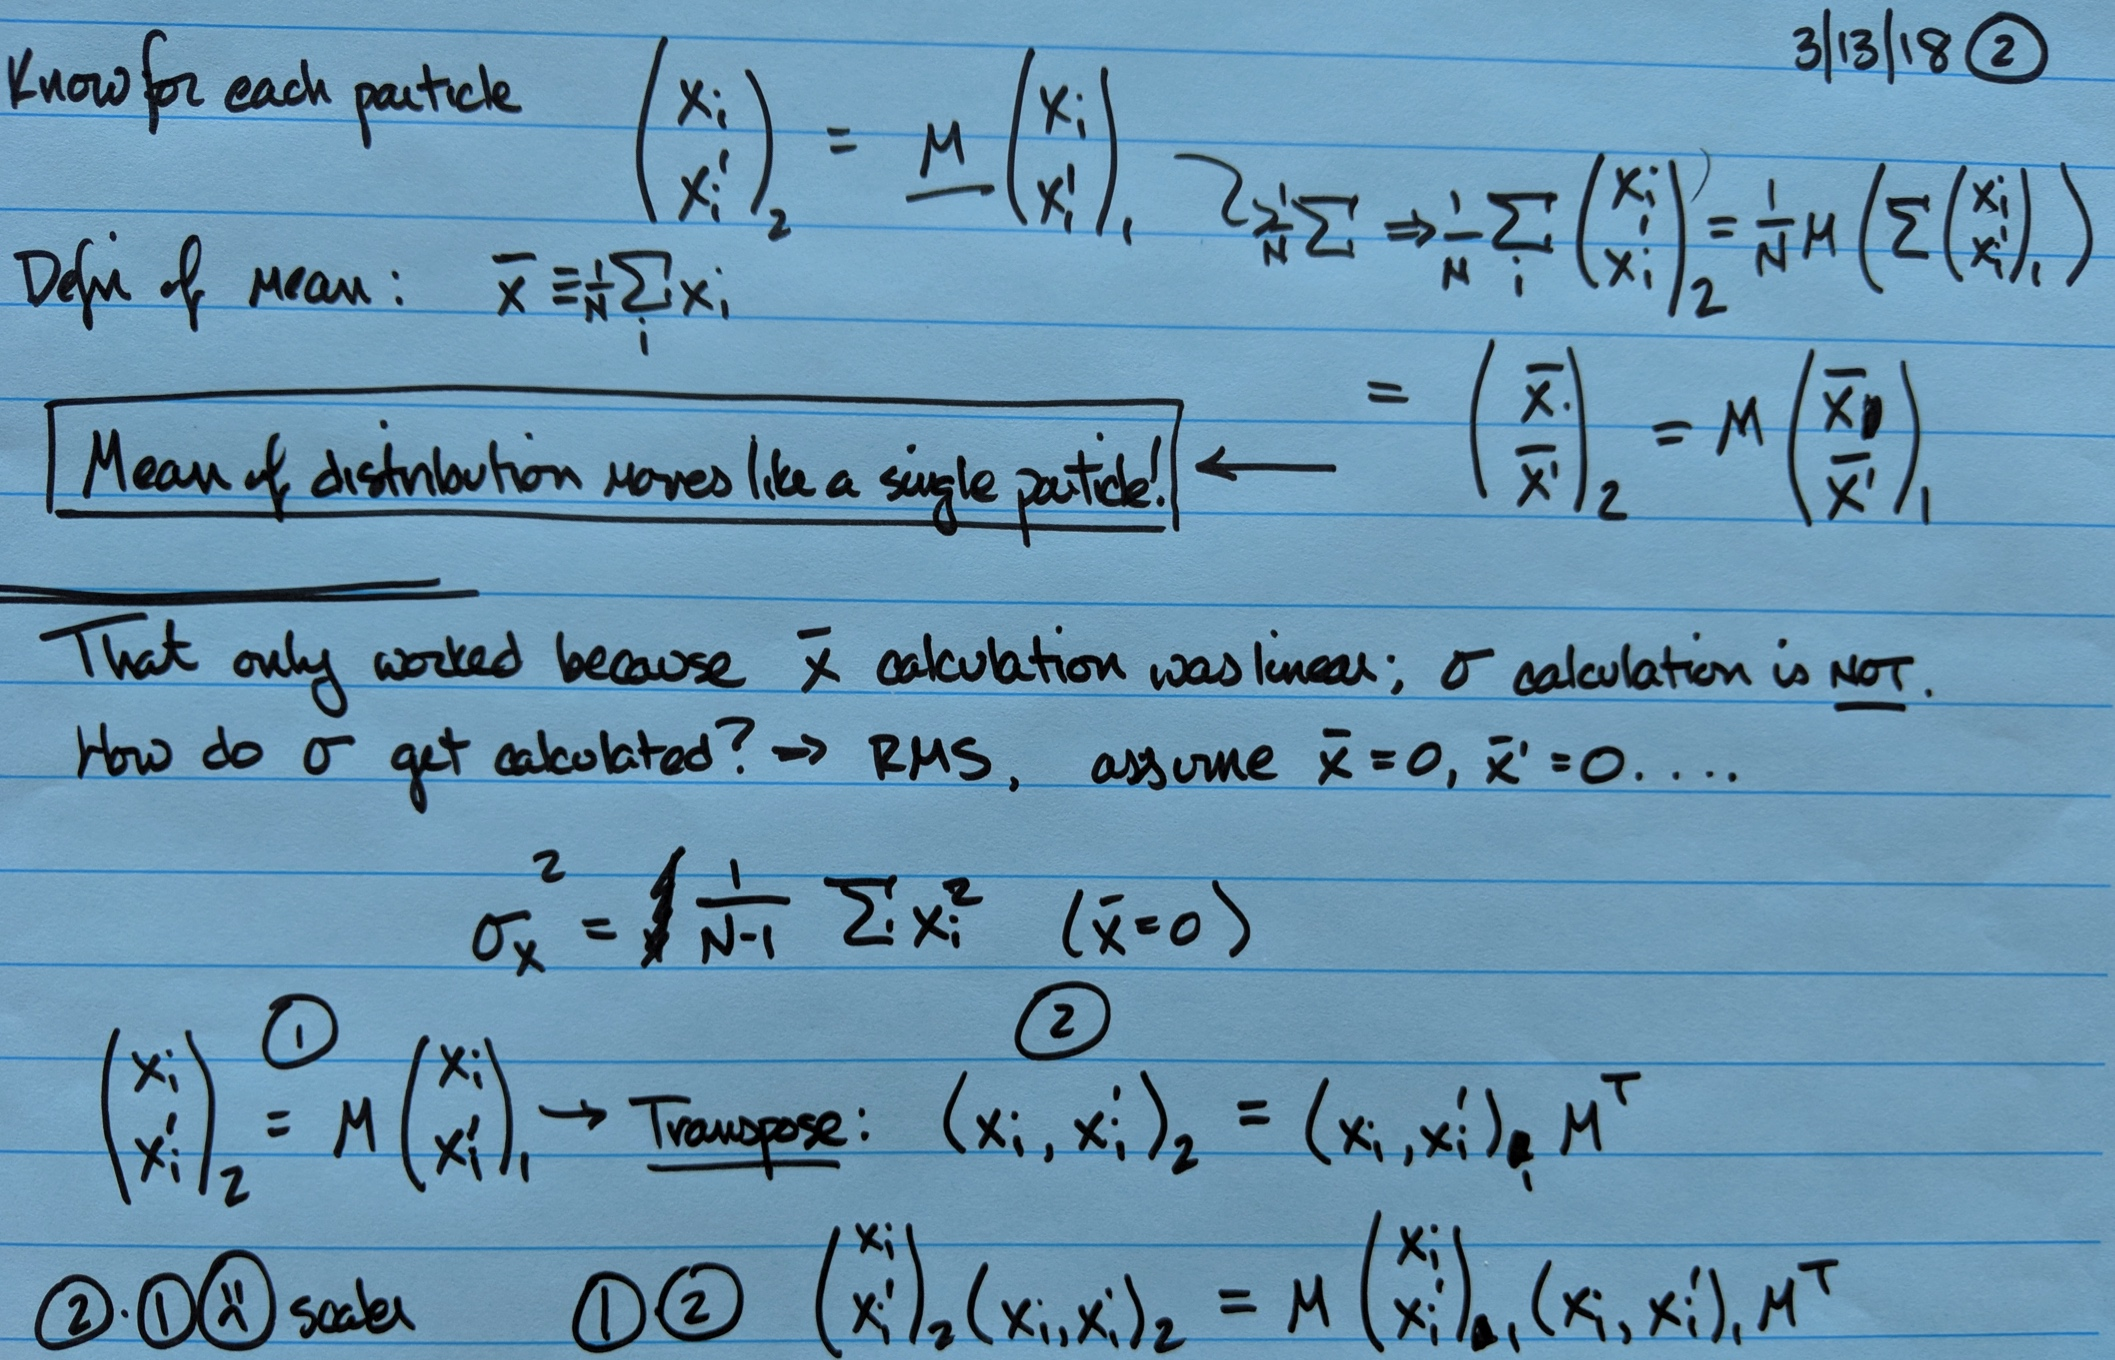 3/13/18 ②
Know for each particle (xᵢ xᵢ')₂ = M (xᵢ xᵢ')₁
1/N Σ ⇒ 1/N Σᵢ (xᵢ xᵢ')₂ = 1/N M (Σ (xᵢ xᵢ')₁)
Defn of mean: x̄ ≡ 1/N Σᵢ xᵢ
= (x̄ x̄')₂ = M (x̄ x̄')₁
Mean of distribution moves like a single particle! ←
That only worked because x̄ calculation was linear; σ calculation is NOT.
How do σ get calculated? → RMS, assume x̄ = 0, x̄' = 0.....
σₓ² = 1/(N-1) Σ xᵢ² (x̄ = 0)
① ②
(xᵢ xᵢ')₂ = M (xᵢ xᵢ')₁ → Transpose: (xᵢ, xᵢ')₂ = (xᵢ, xᵢ')₁ Mᵀ
②·① scaler ①② (xᵢ xᵢ')₂ (xᵢ, xᵢ')₂ = M (xᵢ xᵢ')₁ (xᵢ, xᵢ')₁ Mᵀ